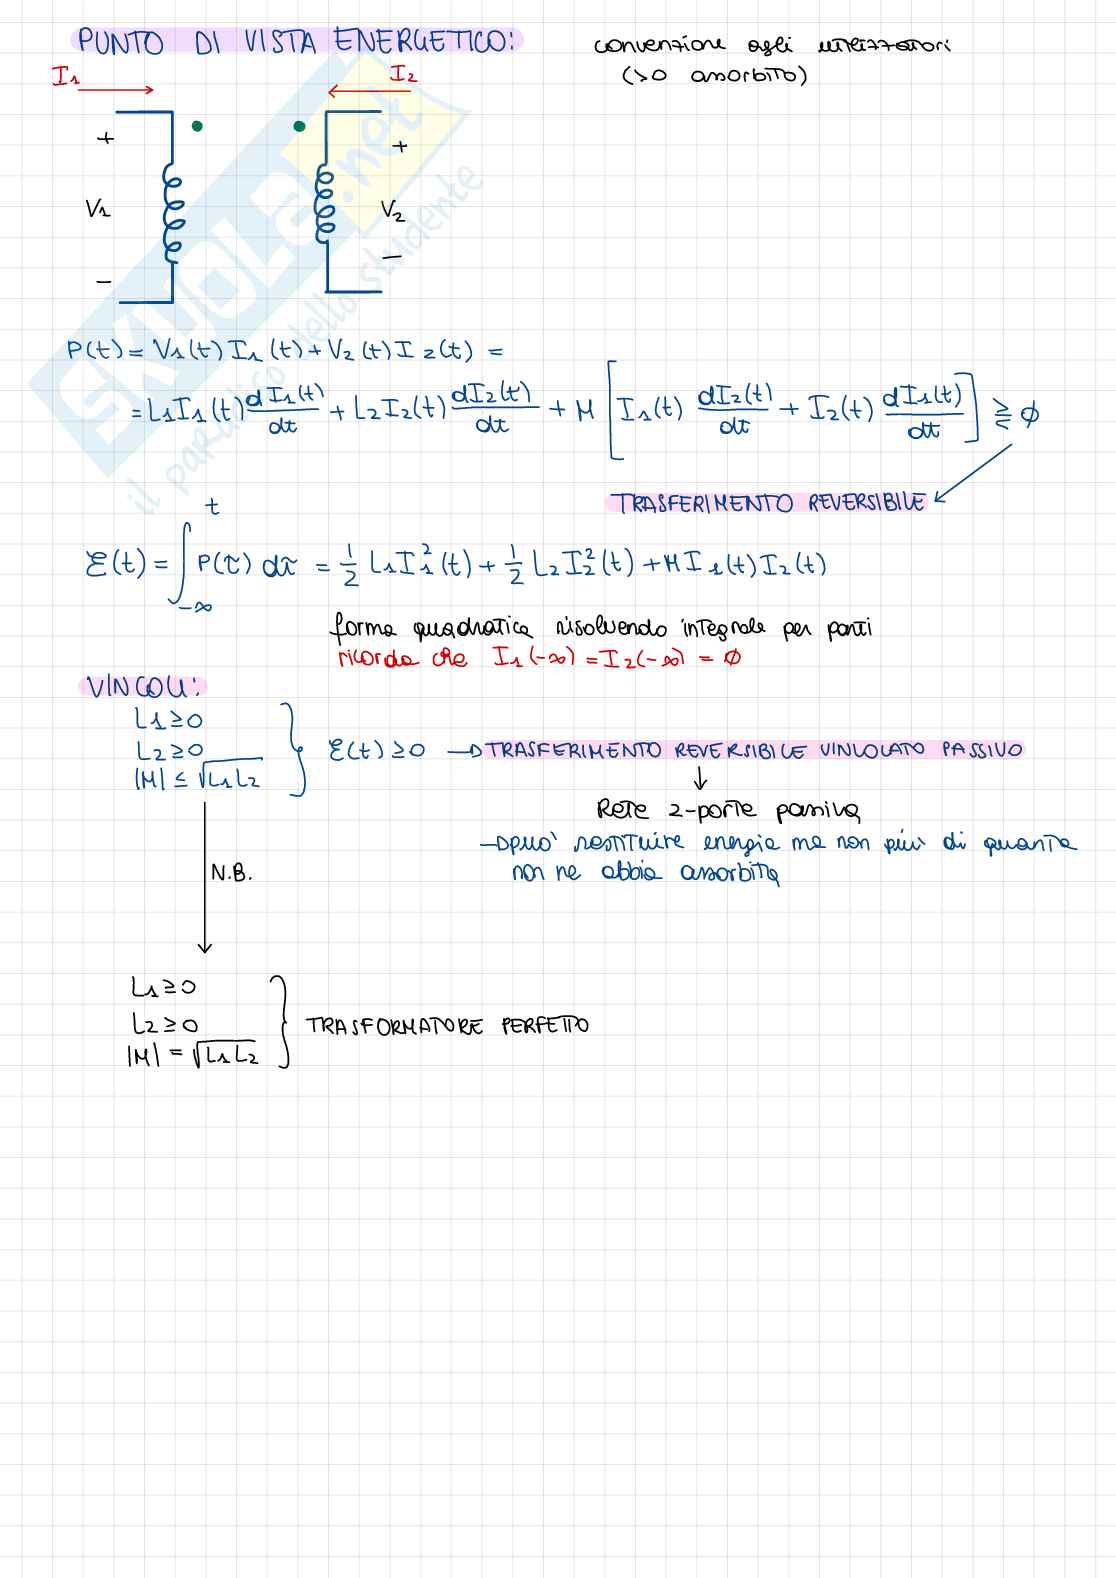 PUNTO DI VISTA ENERGETICO:
convenzione agli utilizzatori
(>0 assorbito)
I1
I2
+
+
V1
V2
−
−
SKUOLA.net
il paradiso dello studente
P(t) = V1(t) I1(t) + V2(t) I2(t) =
= L1 I1(t) dI1(t)/dt + L2 I2(t) dI2(t)/dt + M [ I1(t) dI2(t)/dt + I2(t) dI1(t)/dt ] ⪌ ∅
TRASFERIMENTO REVERSIBILE
ℰ(t) = ∫_{-∞}^{t} P(τ) dτ = 1/2 L1 I1²(t) + 1/2 L2 I2²(t) + M I1(t) I2(t)
forma quadratica risolvendo integrale per parti
ricorda che I1(-∞) = I2(-∞) = ∅
VINCOLI:
L1 ≥ 0
L2 ≥ 0
|M| ≤ √L1 L2
ℰ(t) ≥ 0 → TRASFERIMENTO REVERSIBILE VINCOLATO PASSIVO
Rete 2-porte passiva
→ può restituire energia ma non più di quanta
non ne abbia assorbita
N.B.
L1 ≥ 0
L2 ≥ 0
|M| = √L1 L2
TRASFORMATORE PERFETTO